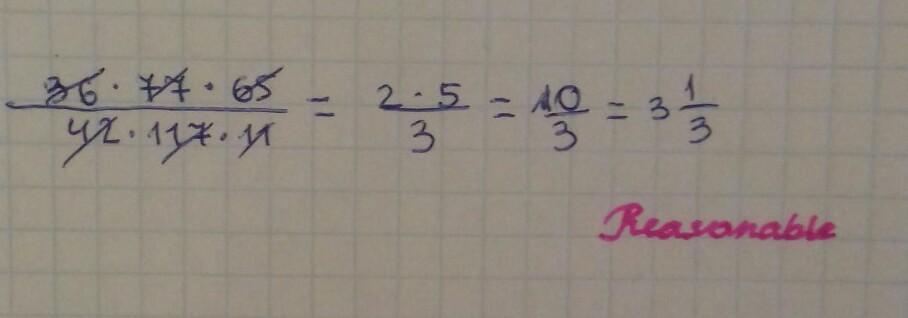 36 · 77 · 65 / 42 · 117 · 11 = 2 · 5 / 3 = 10 / 3 = 3 1/3
Reasonable